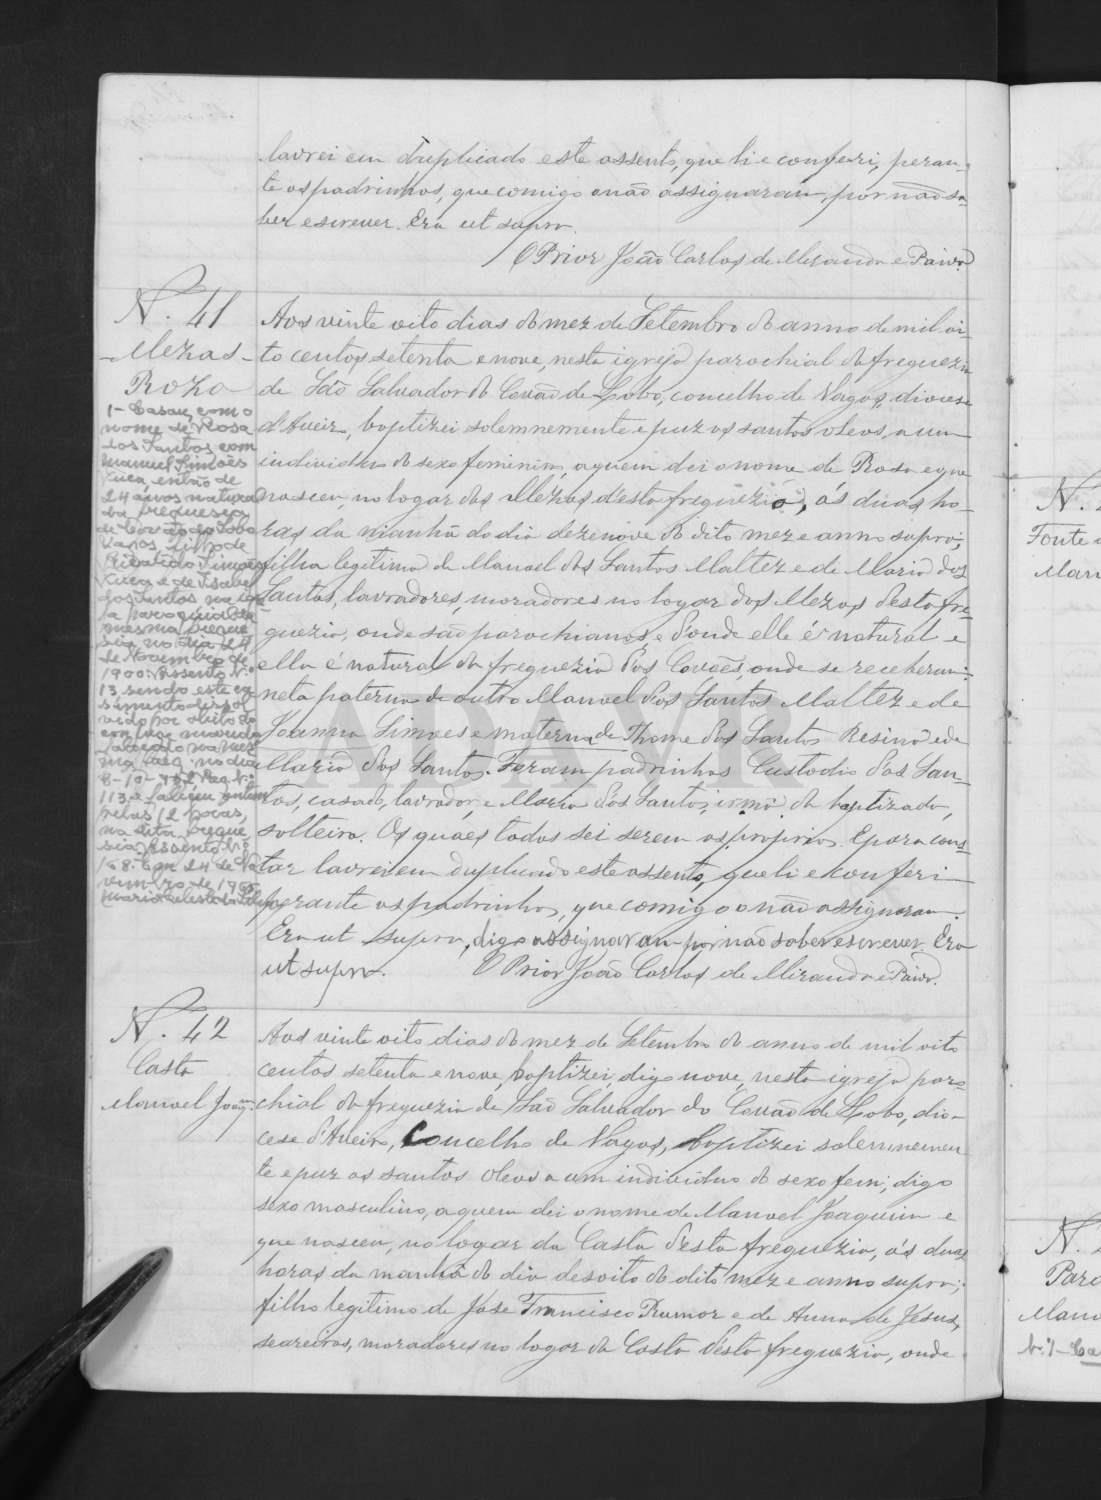 lavrei em duplicado este assento, que li e conferi, peran-
te os padrinhos, que comigo o não assignaram, por não sa-
ber escrever. Era ut supra.
O Prior João Carlos de Miranda e Paiva
N. 41
Mezas
Roza
1- Casou com o
nome de Rosa
dos Santos com
Manuel Simões
então de
24 anos natural
da freguesia
de Covão do Lobo
Vagos filho de
Simões
e de Isabel
dos Santos na
paroquial da
mesma fregue
sia no dia 24
de Novembro de
1900. Assento N.º
13 sendo este ca
samento dissol
vido por obito do
falecido na
no dia
113 e faleceu
pelas 12 horas,
na dita fregue
sia, Assento N.º
168. Em 24 de No
vembro de
Aos vinte oito dias do mez de Setembro do anno de mil oi-
to centos setenta e nove, nesta igreja parochial da freguezia
de São Salvador do Covão do Lobo, concelho de Vagos, diocese
d'Aveiro, baptizei solemnemente e puz os santos oleos, a um
individuo do sexo feminino, a quem dei o nome de Rosa e que
nasceu, no logar das Mezas d'esta freguezia, ás duas ho-
ras da manhã do dia dezenove do dito mez e anno supra;
filha legitima de Manoel dos Santos Maltez e de Maria dos
Santos, lavradores, moradores no logar das Mezas d'esta fre-
guezia, onde são parochianos, e d'onde elle é natural e
ella é natural da freguezia dos Covões, onde se receberam:
neta paterna de outro Manoel dos Santos Maltez e de
Joanna Simoes e materna de Thome dos Santos Resina e de
Maria dos Santos. Foram padrinhos Custodio dos San-
tos, casado, lavrador, e Maria dos Santos, irmã da baptizada,
solteira. Os quaes todos sei serem os proprios. E para cons-
tar lavrei em duplicado este assento, que li e conferi
perante os padrinhos, que comigo o não assignaram.
Era ut supra, digo assignaram por não saber escrever. Era
ut supra. O Prior João Carlos de Miranda e Paiva.
N. 42
Casta
Manoel Joaqm
Aos vinte oito dias do mez de Setembro do anno de mil oito
centos setenta e nove, baptizei, digo nove, nesta igreja paro-
chial da freguezia de São Salvador do Covão do Lobo, dio-
cese d'Aveiro, Concelho de Vagos, baptizei solemnemen-
te e puz os santos oleos a um individuo do sexo femi, digo
sexo masculino, a quem dei o nome de Manoel Joaquim e
que nasceu, no logar da Casta d'esta freguezia, ás duas
horas da manhã do dia desoito do dito mez e anno supra;
filho legitimo de José Francisco Rumor e de Anna de Jesus,
seareiros, moradores no logar da Casta d'esta freguezia, onde
ADAVR
N.
Fonte
N.